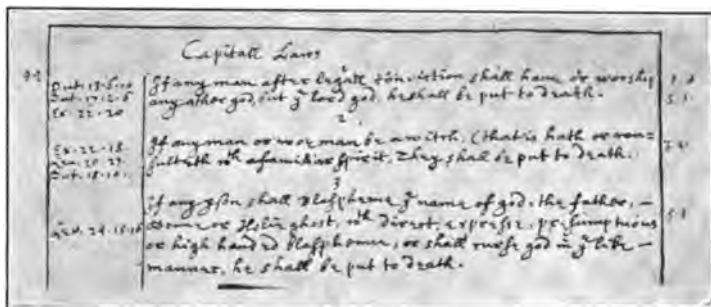 Capitall Laws
Dut. 13. 6. 10 If any man after legall conviction shall have or worship
Dut. 17. 2. 6 any other god, but yͤ lord god, he shall be put to death.
Ex. 22. 20
2,
Ex. 22. 18. If any man or woman be a witch, (that is hath or con=
Leu. 20. 27. sulteth wth a familiar spirit, They shal be put to death.
Dut. 18. 10.
3
If any pson shall Blaspheme yͤ name of god, the father, –
Leu. 24. 15. 16 Sonne or Holie ghost, wth direct, expresse, presumptuous
or high handed blasphemie, or shall curse god in yͤ like –
manner, he shall be put to death.